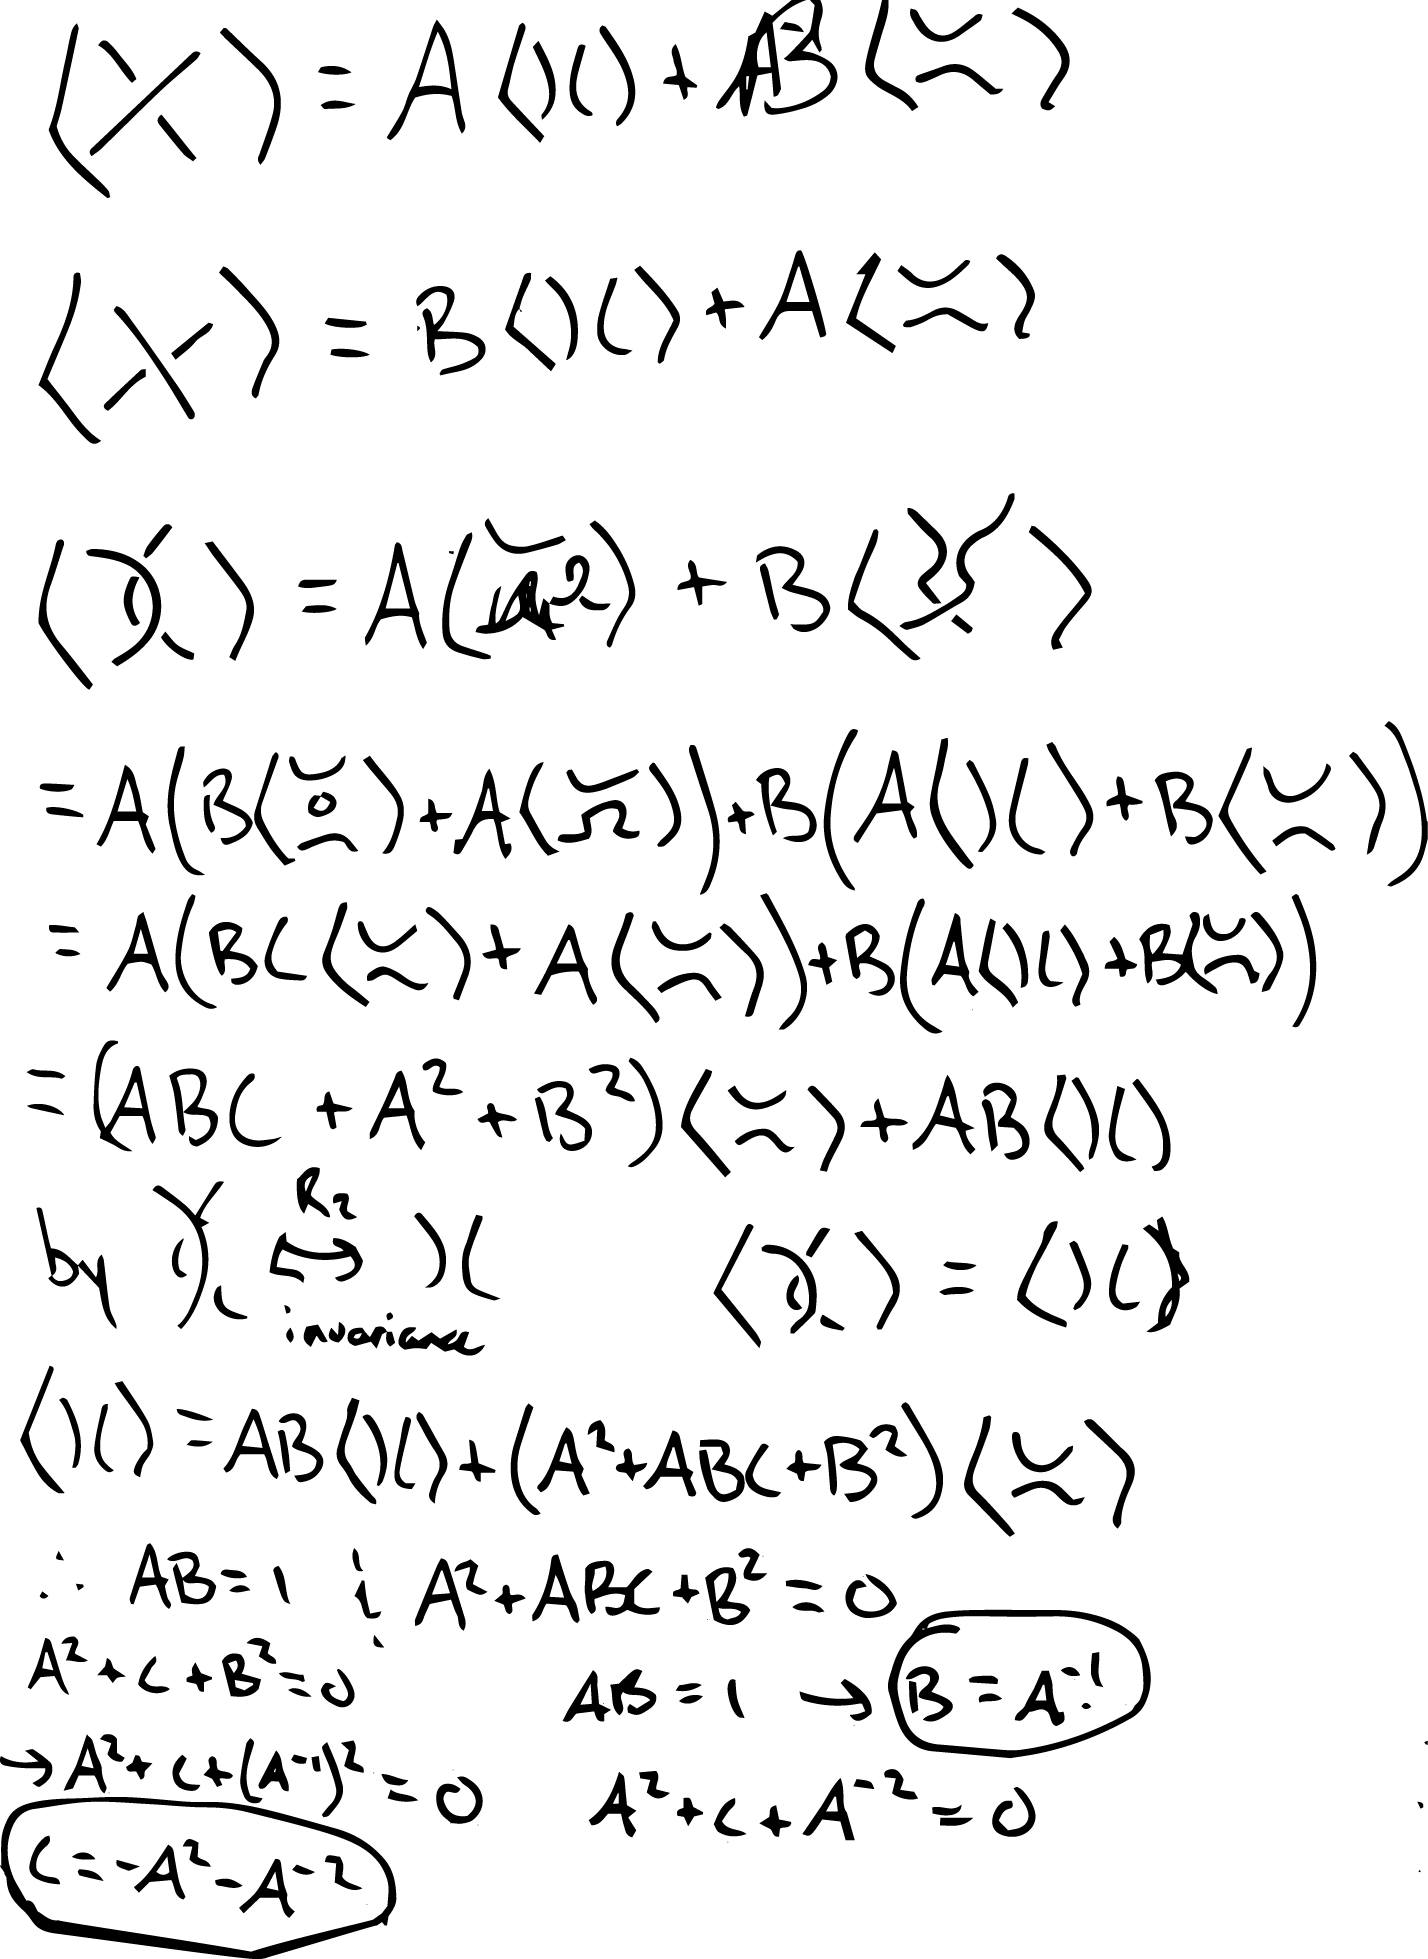 ⟨⤫⟩ = A⟨)(⟩ + B⟨≍⟩
⟨⤬⟩ = B⟨)(⟩ + A⟨≍⟩
⟨ ⟩ = A⟨ ⟩ + B⟨ ⟩
= A(B⟨ ⟩ + A⟨ ⟩) + B(A⟨)(⟩ + B⟨≍⟩)
= A(BC⟨≍⟩ + A⟨≍⟩) + B(A⟨)(⟩ + B⟨≍⟩)
= (ABC + A² + B²)⟨≍⟩ + AB⟨)(⟩
by R₂ ↔ )( invariance ⟨ ⟩ = ⟨)(⟩
⟨)(⟩ = AB⟨)(⟩ + (A² + ABC + B²)⟨≍⟩
∴ AB = 1 ; A² + ABC + B² = 0
A² + C + B² = 0 AB = 1 → B = A⁻¹
→ A² + C + (A⁻¹)² = 0 A² + C + A⁻² = 0
C = -A² - A⁻²